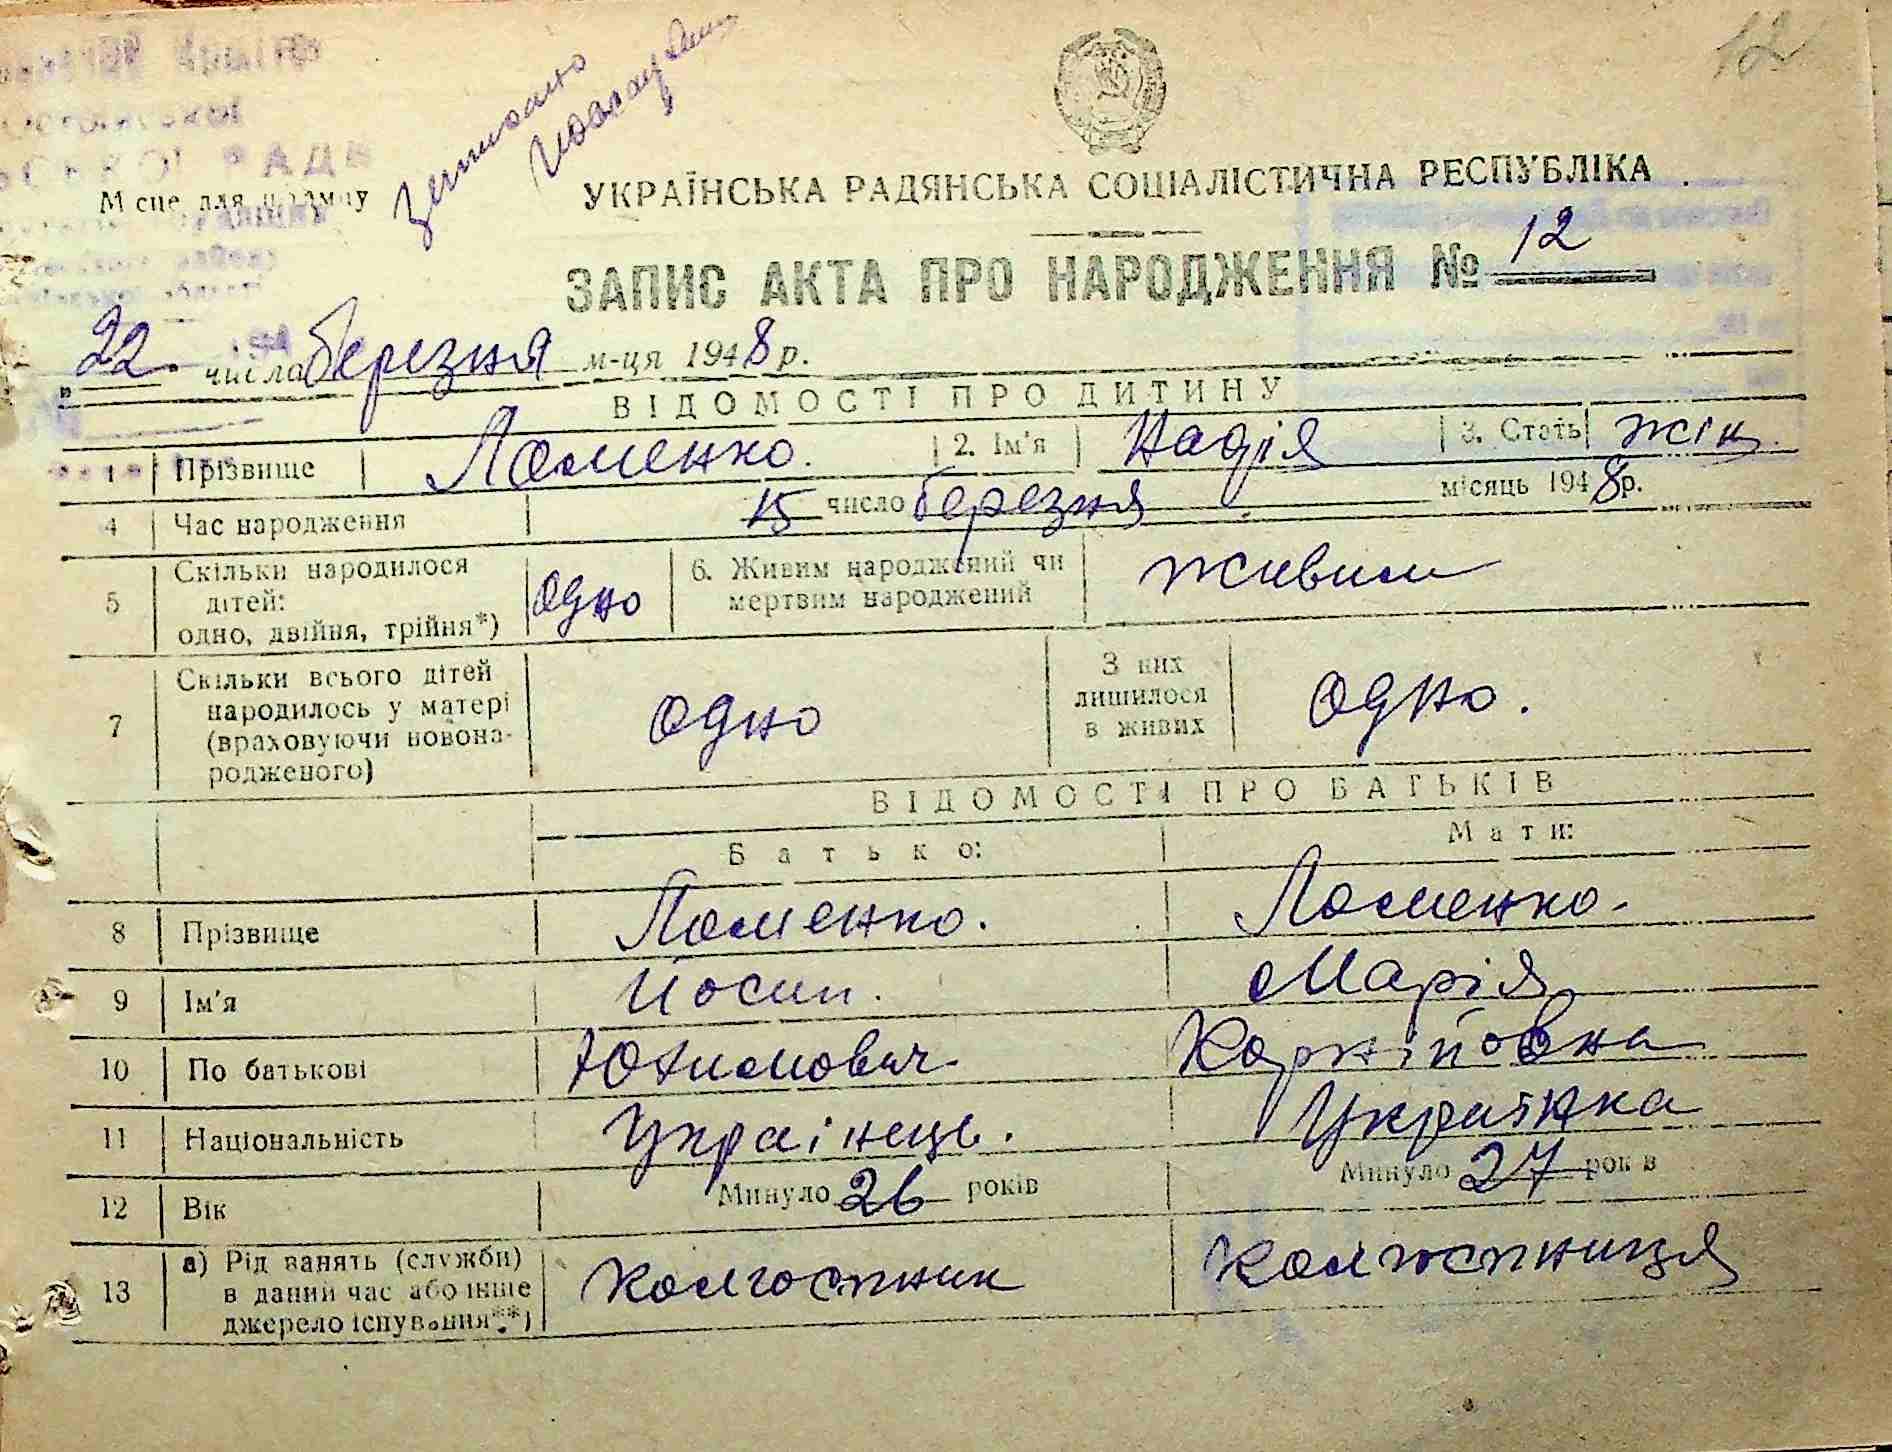 12
Місце для штампу
УКРАЇНСЬКА РАДЯНСЬКА СОЦІАЛІСТИЧНА РЕСПУБЛІКА
ЗАПИС АКТА ПРО НАРОДЖЕННЯ № 12
„22" числа березня м-ця 1948 р.
ВІДОМОСТІ ПРО ДИТИНУ
1 Прізвище Ломенко. 2. Ім'я Надія 3. Стать жін.
4 Час народження 15 число березня місяць 1948 р.
5 Скільки народилося дітей: одно, двійня, трійня*) одно 6. Живим народжений чи мертвим народжений живим
7 Скільки всього дітей народилось у матері (враховуючи новонародженого) одно З них лишилося в живих одно.
ВІДОМОСТІ ПРО БАТЬКІВ
Батько: Мати:
8 Прізвище Ломенко. Ломенко.
9 Ім'я Йосип. Марія
10 По батькові Юхимович Корнійовна
11 Національність Українець. Українка
12 Вік Минуло 26 років Минуло 27 років
13 а) Рід занять (служби) в даний час або інше джерело існування**) колгоспник колгоспниця